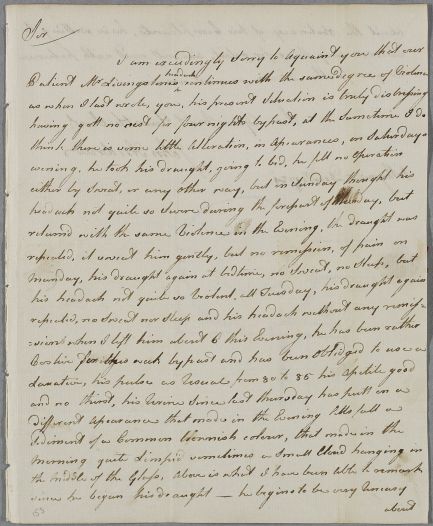 Sir
I am exceedingly Sorry to Acquaint you that our
Patient Mr Livingston's headach continues with the same degree of Violence
as when I last wrote, you, his present Situation is truly distressing
having gott no rest for four nights bypast, at the Sametime I do
think there is some little Alteration, in Apearances, on Saturday
evening, he took his draught, going to bed, he felt no Operation
either by Sweat, or any other way, but on Sunday thought his
headach not quite so Severe during the forepart of day, but
returned with the same Violence in the Evening, the draught was
repeated, it sweat him gently, but no remission, of pain on
Monday, his draught again at bedtime, no Sweat, no Sleep, but
his headach not quite so Violent, all Tuesday, his draught again
repeated, no Sweat nor Sleep and his headach without any remis-
sion when I left him about 6 this Evening, he has been rather
Costive for this week bypast and has been Obliged to use a
Laxative, his pulse as Usual from 80 to 85 his Apetite good
and no thirst, his Urine Since last thursday has putt on a
different Apearance that made in the Evening letts fall a
Sediment of a Common Brownish colour, that made in the
morning quite Limpid sometimes a Small Cloud hanging in
the Middle of the Glass, Above is what I have been able to remark
since he began his draught — he begins to be very Uneasy
about
53